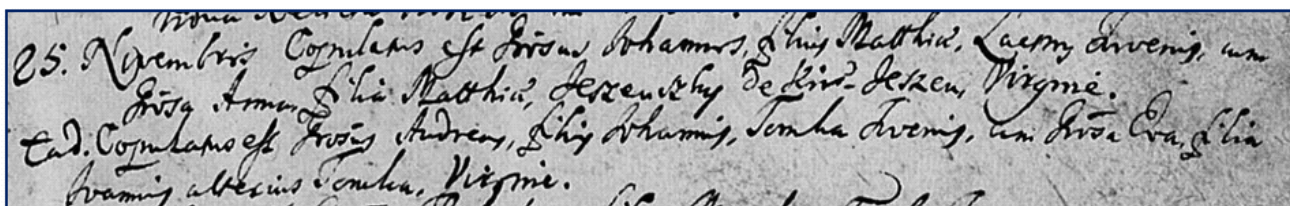 25. Novembris Copulatus est Provus Johannes, filius Matthiæ, Laczny Juvenis, cum
Provæ Anna, filia Matthiæ, Jeszenszky de Kiss-Jeszen, Virgine.
Ead. Copulatus est Provus Andreas, filius Johannis, Tomka Juvenis, cum Prova Eva, filia
Joannis alterius Tomka, Virgine.